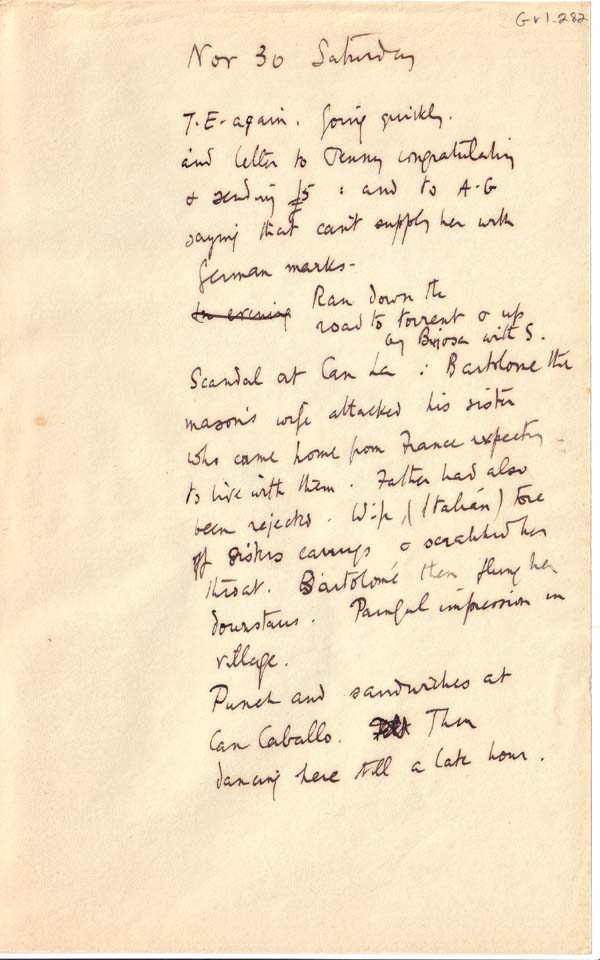 Gv1-282
Nov 30 Saturday
T.E. again. Going quickly.
and letter to Jenny congratulating
& sending £5 : and to A-G
saying that can't supply her with
German marks-
In evening Ran down the
road to torrent & up
by with S.
Scandal at Can La : Bartolome the
mason's wife attacked his sister
who came home from France expecting
to live with them. Father had also
been rejected. Wife (Italian) tore
off sisters earrings & scratched her
throat. Bartolomé then flung her
downstairs. Painful impression in
village.
Punch and sandwiches at
Can Caballo. Then
dancing here till a late hour.